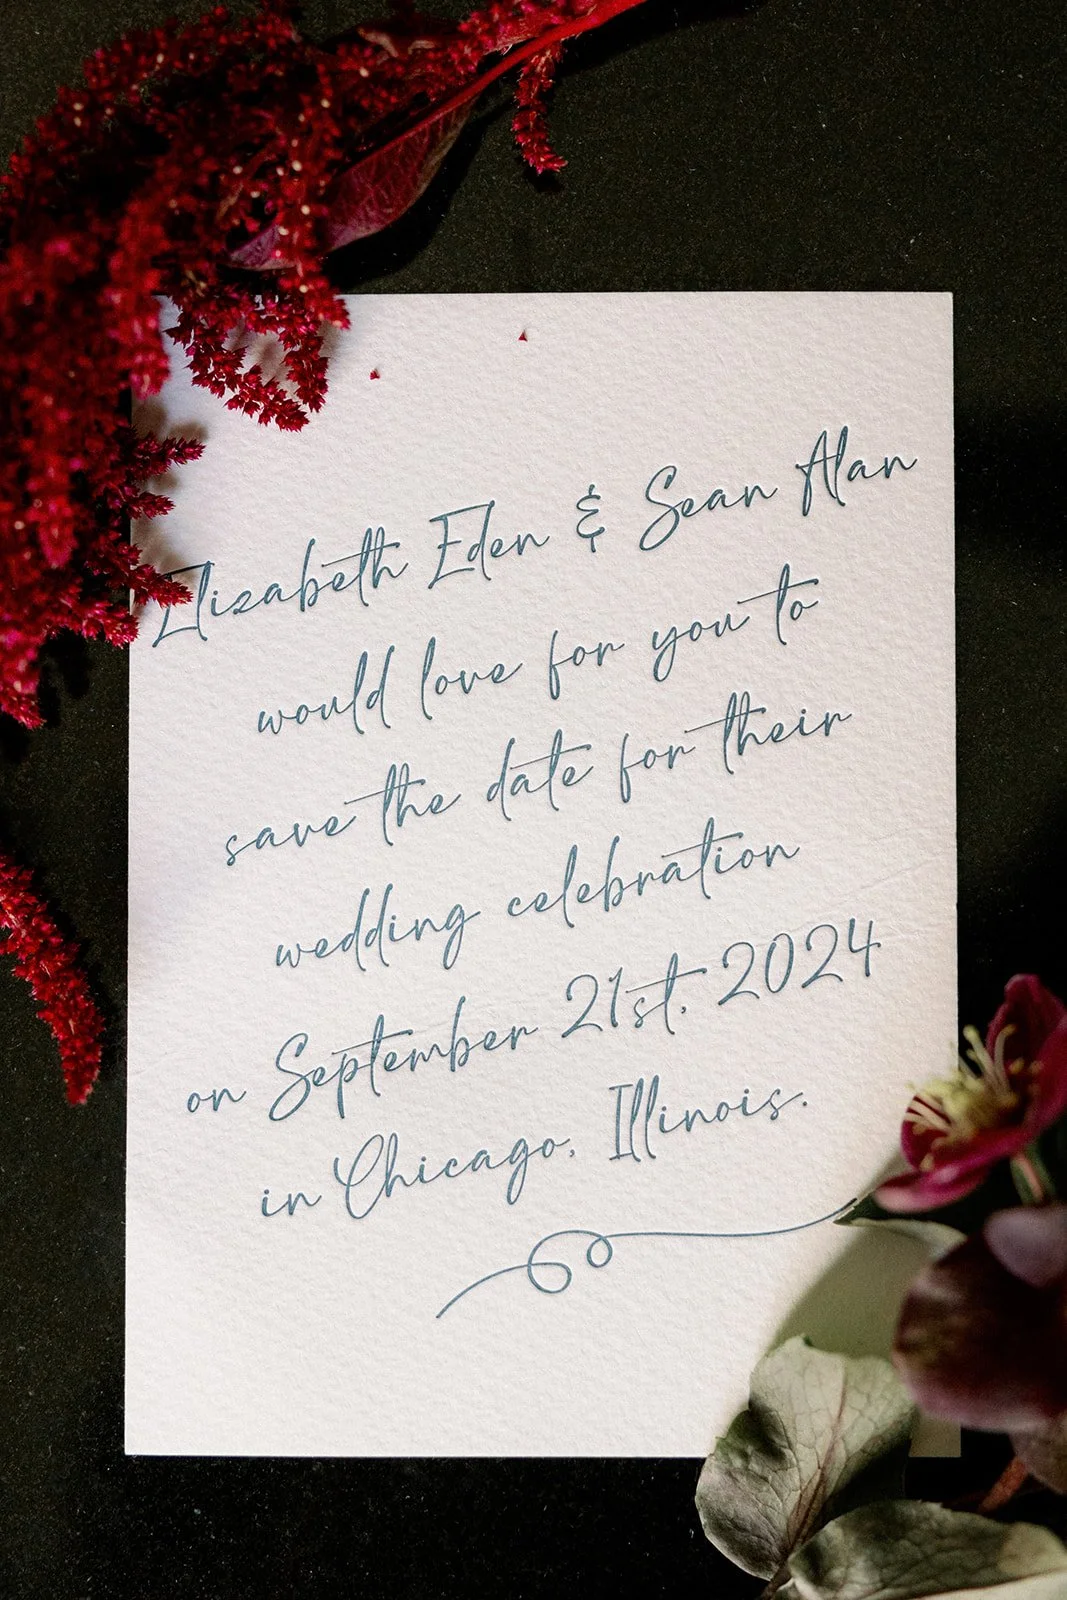 Elizabeth Eden & Sean Alan
would love for you to
save the date for their
wedding celebration
on September 21st, 2024
in Chicago, Illinois.